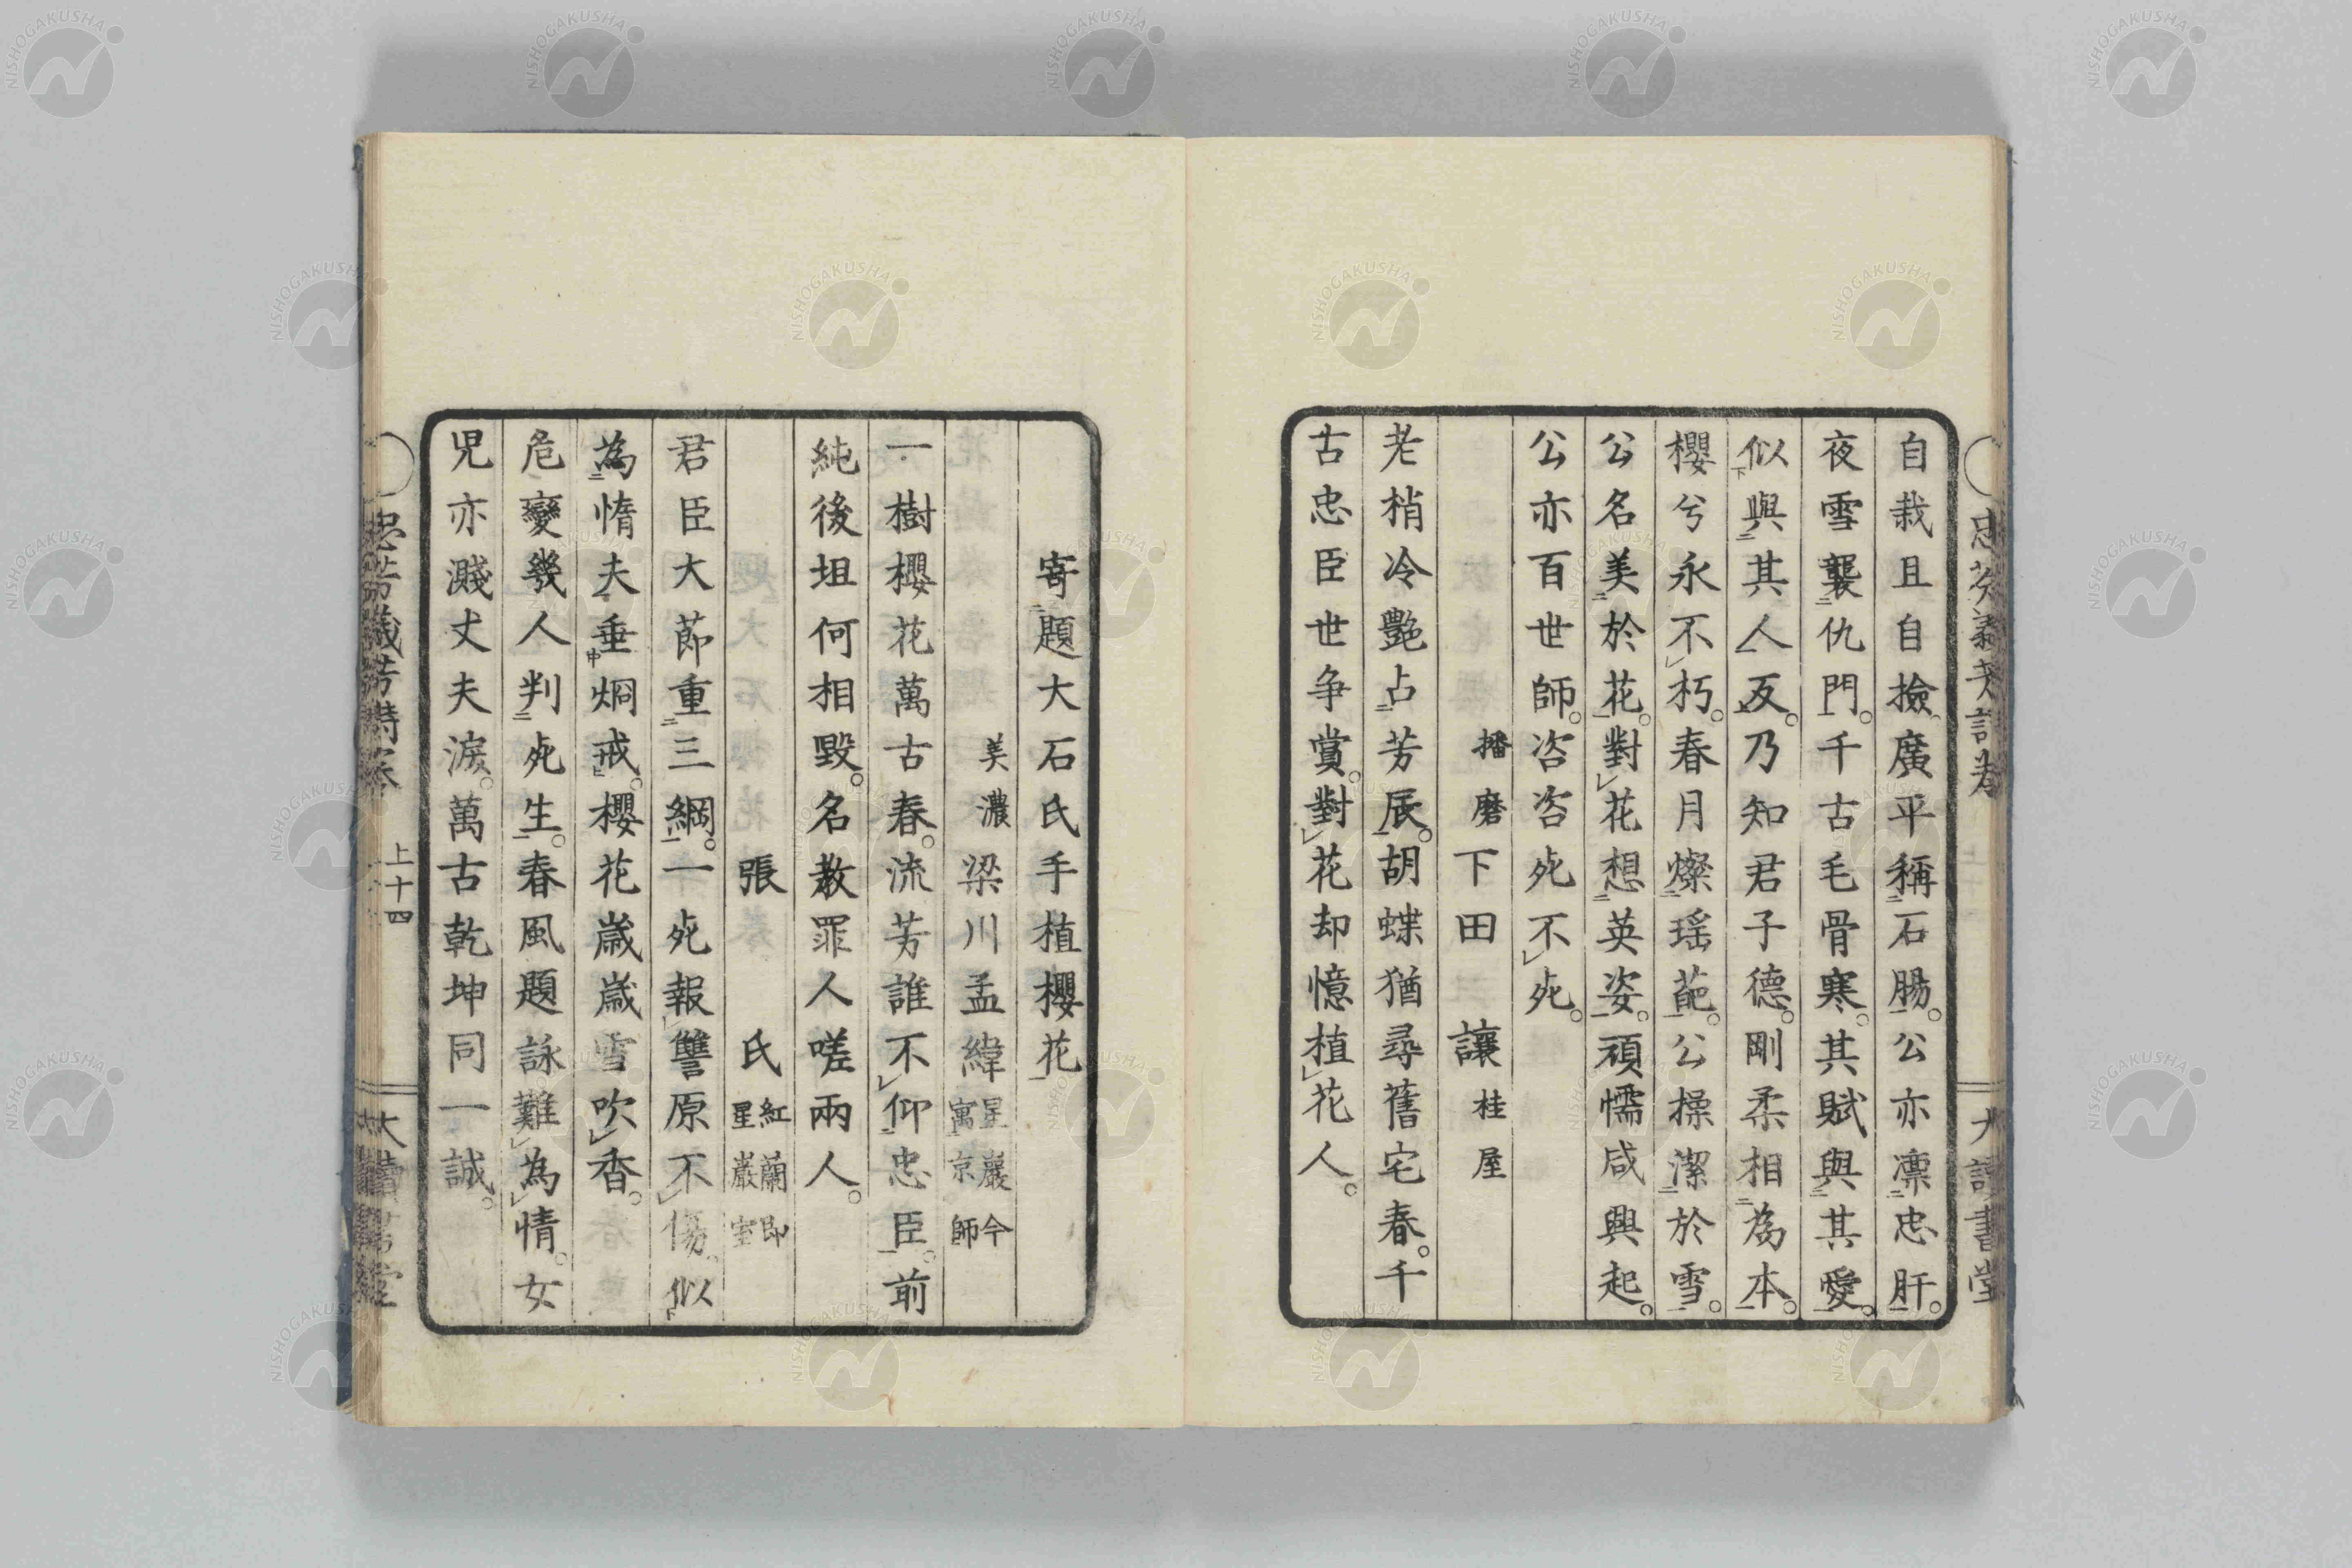 自栽且自撿廣平稱石腸公亦凛忠肝
夜雪襲仇門千古毛骨寒其賦與其愛
似與其人反乃知君子德剛柔相為本
櫻兮永不朽春月燦瑶葩公操潔於雪
公名美於花對花想英姿頑懦咸興起
公亦百世師咨咨死不死
播磨下田讓桂屋
老梢冷艷占芳辰胡蝶猶尋舊宅春千
古忠臣世争賞對花却憶植花人
寄題大石氏手植櫻花
美濃梁川孟緯星巖今寓京師
一樹櫻花萬古春流芳誰不仰忠臣前
純後坦何相毀名教罪人嗟兩人
張氏紅蘭即星巖室
君臣大節重三綱一死報讐原不傷似
為惰夫垂炯戒櫻花歳歳雪吹香
危變幾人判死生春風題詠難為情女
児亦濺丈夫淚萬古乾坤同一誠
上十四
大讀書堂
NISHOGAKUSHA